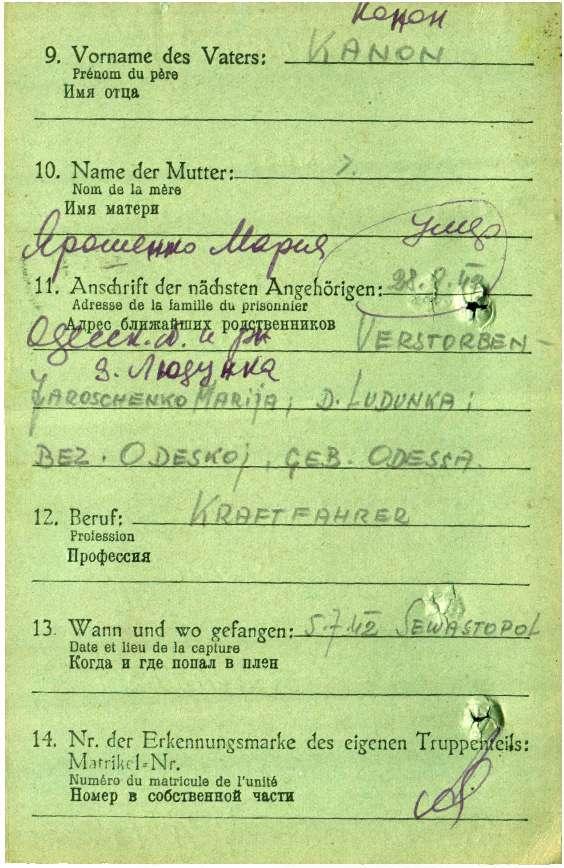 Канон
9. Vorname des Vaters: KANON
Prénom du père
Имя отца
10. Name der Mutter: ?.
Nom de la mère
Имя матери
Ярошенко Мария
11. Anschrift der nächsten Angehörigen: 28.8.42
Adresse de la famille du prisonnier
Адрес ближайших родственников VERSTORBEN-
Одесск. о. и рн
д. Людунка
JAROSCHENKO MARIJA; D. LUDUNKA;
BEZ. ODESKOJ, GEB. ODESSA.
12. Beruf: KRAFTFAHRER
Profession
Профессия
13. Wann und wo gefangen: 5.7.42 SEWASTOPOL
Date et lieu de la capture
Когда и где попал в плен
14. Nr. der Erkennungsmarke des eigenen Truppenteils:
Matrikel-Nr.
Numéro du matricule de l'unité
Номер в собственной части